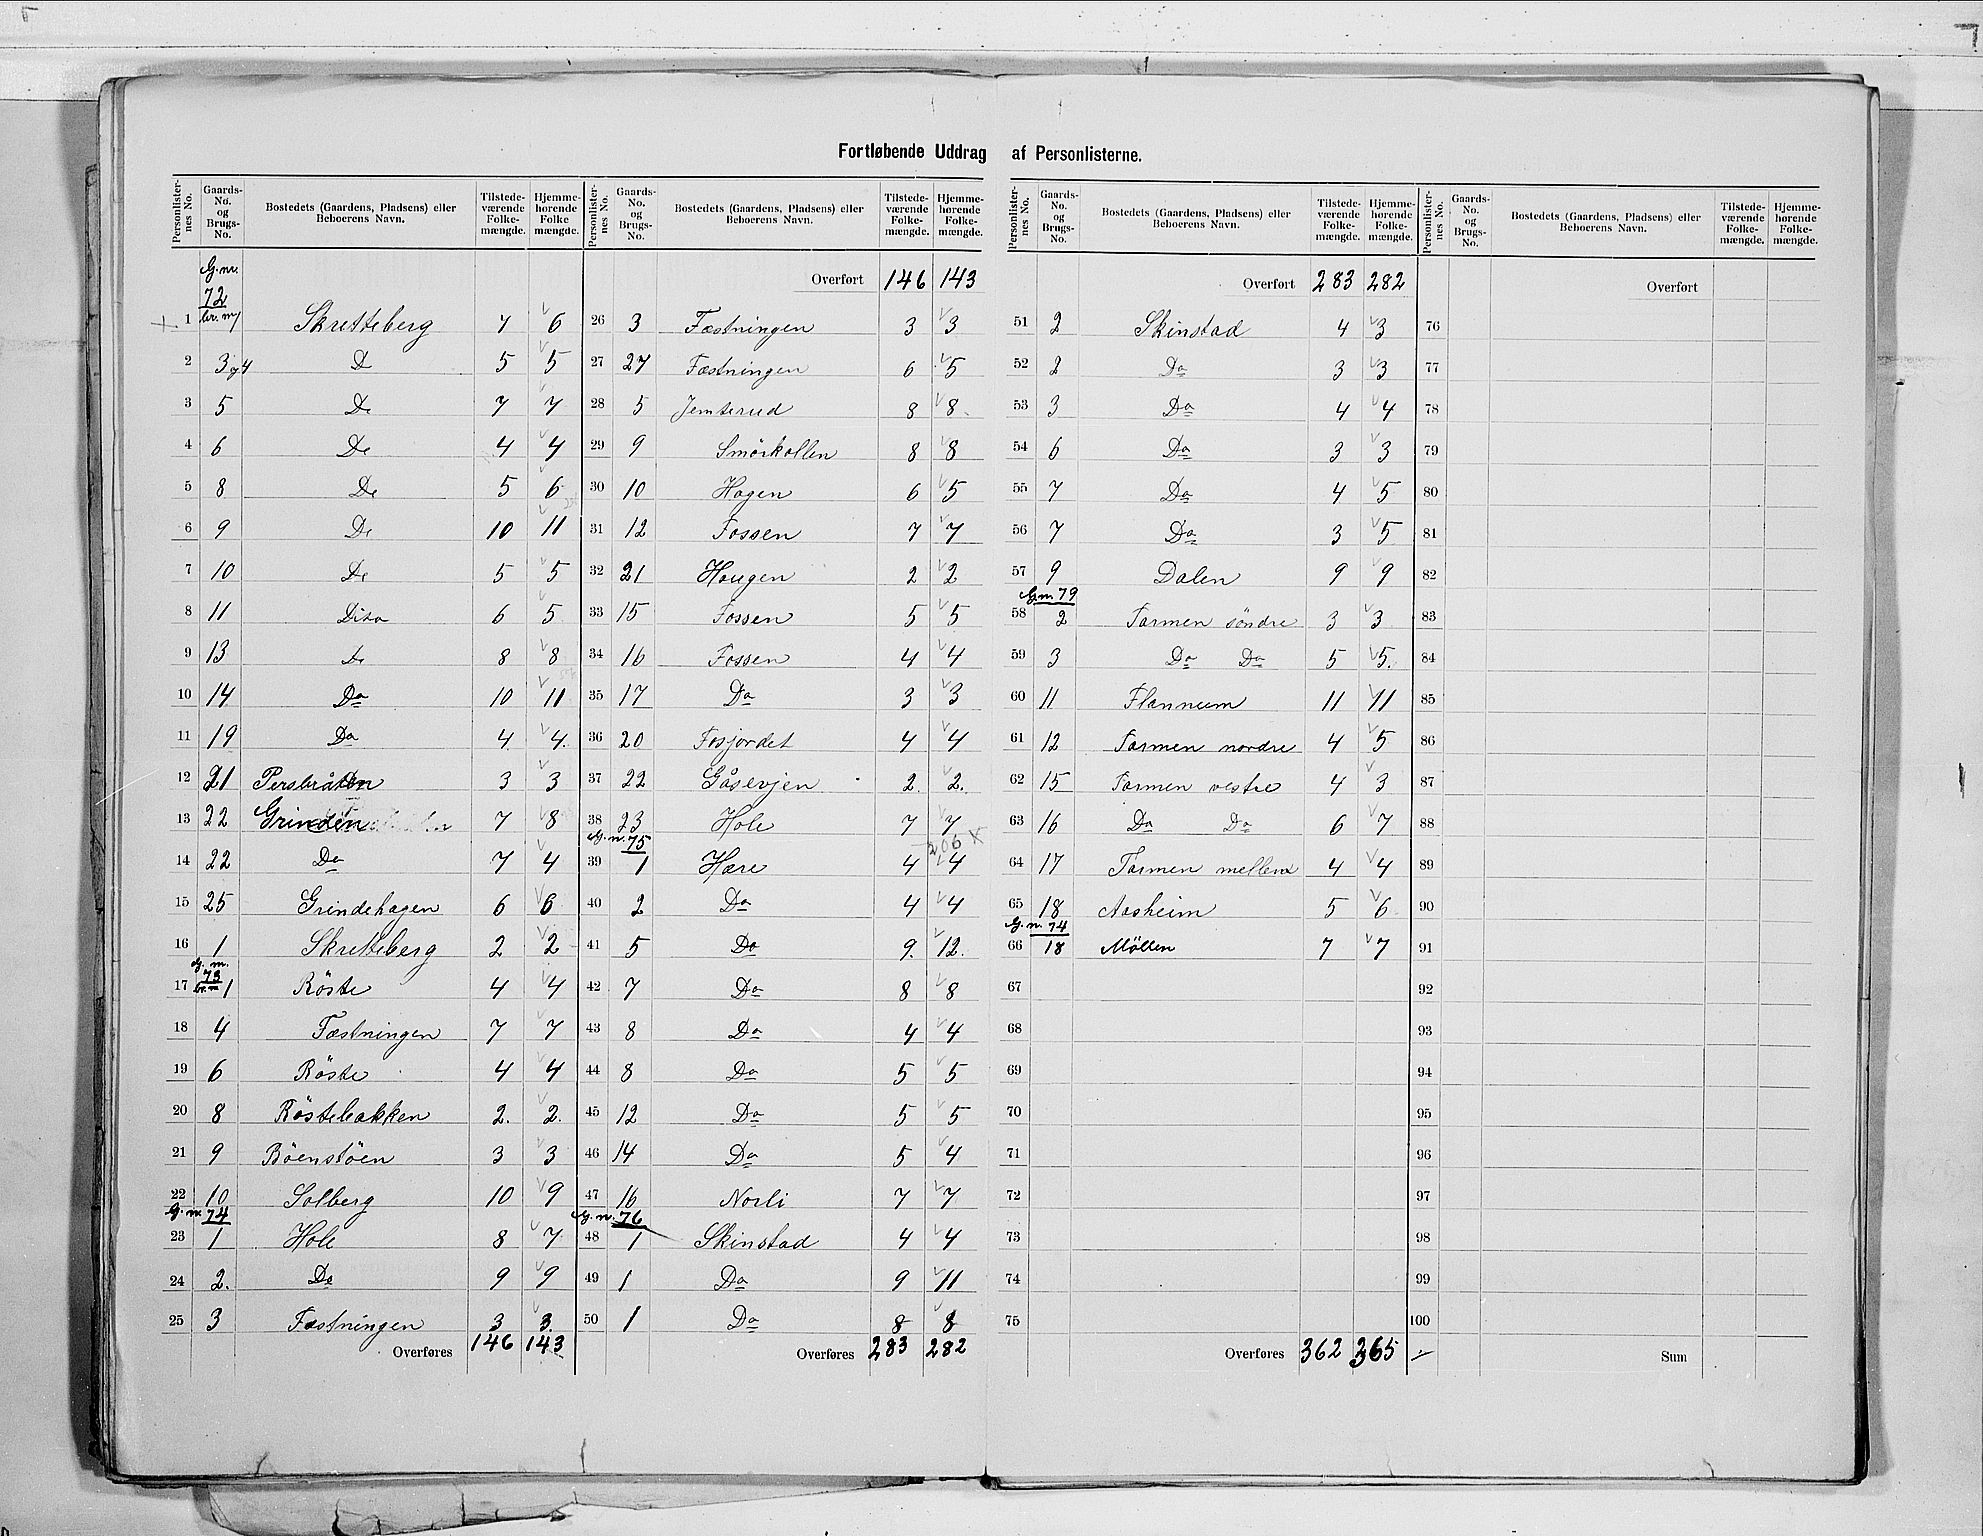 Fortløbende Uddrag af Personlisterne.
Personlisternes No. | Gaards-No. og Brugs-No. | Bostedets (Gaardens, Pladsens) eller Beboerens Navn. | Tilstedeværende Folkemængde. | Hjemmehørende Folkemængde.
G. nr. 72 br. nr.
1 Skretteberg 7 6
2 3 og 4 Do 5 5
3 5 Do 7 7
4 6 Do 4 4
5 8 Do 5 6
6 9 Do 10 11
7 10 Do 5 5
8 11 Dito 6 5
9 13 Do 8 8
10 14 Do 10 11
11 19 Do 4 4.
12 21 Persbråten 3 3
13 22 Grinden 7 8
14 22 Do 7 4
15 25 Grindehagen 6 6
16 1 Skretteberg 2 2
G. nr. 73
17 br. nr 1 Röste 4 4
18 4 Fæstningen 7 7
19 6 Röste 4 4
20 8 Röstebakken 2. 2.
21 9 Böenstöen 3 3
22 10 Solberg 10 9
G. nr. 74
23 1 Hole 8 7
24 2. Do 9 9
25 3 Fæstningen 3 3.
Overføres 146 143
Personlisternes No. | Gaards-No. og Brugs-No. | Bostedets (Gaardens, Pladsens) eller Beboerens Navn. | Tilstedeværende Folkemængde. | Hjemmehørende Folkemængde.
Overført 146 143
26 3 Fæstningen 3 3
27 27 Fæstningen 6 5
28 5 Jemterud 8 8.
29 9 Smörkollen 8 8
30 10 Hagen 6 5
31 12 Fossen 7 7
32 21 Haugen 2 2
33 15 Fossen 5 5
34 16 Fossen 4 4
35 17 Do 3 3
36 20 Fosjordet 4 4
37 22 Gåsevjen 2. 2.
38 23 Hole 7 7
G. nr. 75 206 X
39 1 Hære 4 4
40 2 Do 4 4
41 5 Do 9. 12.
42 7 Do 8 8
43 8 Do 4 4
44 8 Do 5 5
45 12 Do 5 5
46 14 Do 5 4
47 16 Norli 7 7
G. nr. 76
48 1 Skinstad 4 4
49 1 Do 9 11
50 1 Do 8 8
Overføres 283 282
Personlisternes No. | Gaards-No. og Brugs-No. | Bostedets (Gaardens, Pladsens) eller Beboerens Navn. | Tilstedeværende Folkemængde. | Hjemmehørende Folkemængde.
Overført 283 282
51 2 Skinstad 4 3
52 2 Do 3 3
53 3 Do 4 4
54 6 Do 3 3
55 7 Do 4 5
56 7 Do 3 5
57 9 Dalen 9 9
G. nr. 79
58 2 Tarmen söndre 3 3
59 3 Do Do 5 5.
60 11 Flannum 11 11
61 12 Tarmen nordre 4 5
62 15 Tarmen vestre 4 3
63 16 Do Do 6 7
64 17 Tarmen mellem 4 4
65 18 Aasheim 5 6
G. nr. 74
66 18 Möllen 7 7
67
68
69
70
71
72
73
74
75
Overføres 362 365
Personlisternes No. | Gaards-No. og Brugs-No. | Bostedets (Gaardens, Pladsens) eller Beboerens Navn. | Tilstedeværende Folkemængde. | Hjemmehørende Folkemængde.
Overført
76
77
78
79
80
81
82
83
84
85
86
87
88
89
90
91
92
93
94
95
96
97
98
99
100
Sum